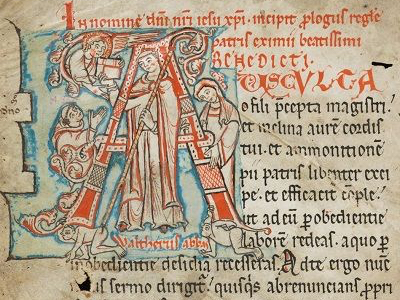 In nomine dni nri iesu xpi. incipit plogus regle
patris eximii beatissimi
BENEDICTI.
AUSCULTA
o fili pcepta magistri.
et inclina aurē cordis
tui. et ammonitionē
pii patris libenter exci
pe. et efficacit cōple.
ut ad eū p obedientie
laborē redeas. a quo p
inobedientie desidia recesseras. Ad te ergo nunc
sermo dirigit. quisqs abrenuncians ppri
Waltherus abbas